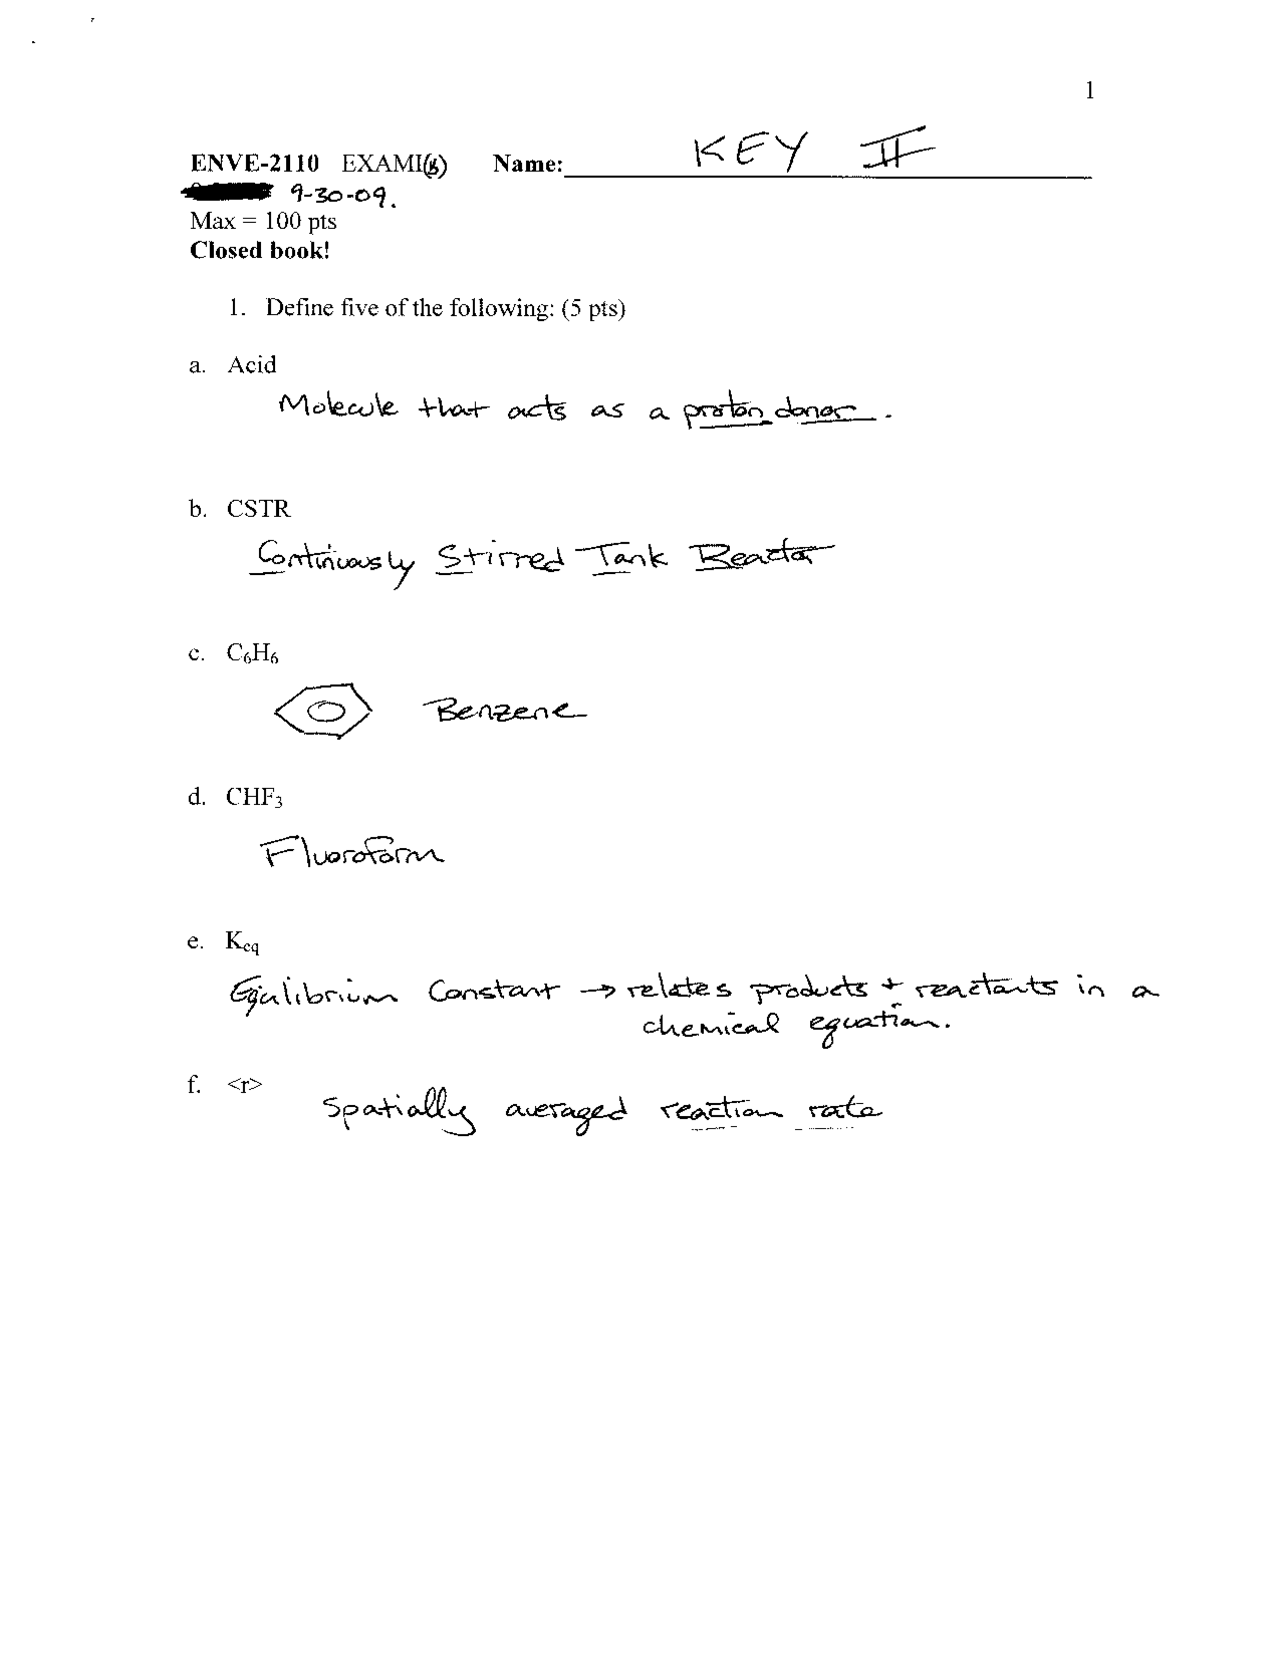 1
ENVE-2110 EXAMI(b) Name: KEY II
9-30-09.
Max = 100 pts
Closed book!
1. Define five of the following: (5 pts)
a. Acid
Molecule that acts as a proton donor.
b. CSTR
Continuously Stirred Tank Reactor
c. C₆H₆
Benzene
d. CHF₃
Fluoroform
e. Keq
Equilibrium Constant → relates products + reactants in a
chemical equation.
f. <r>
Spatially averaged reaction rate